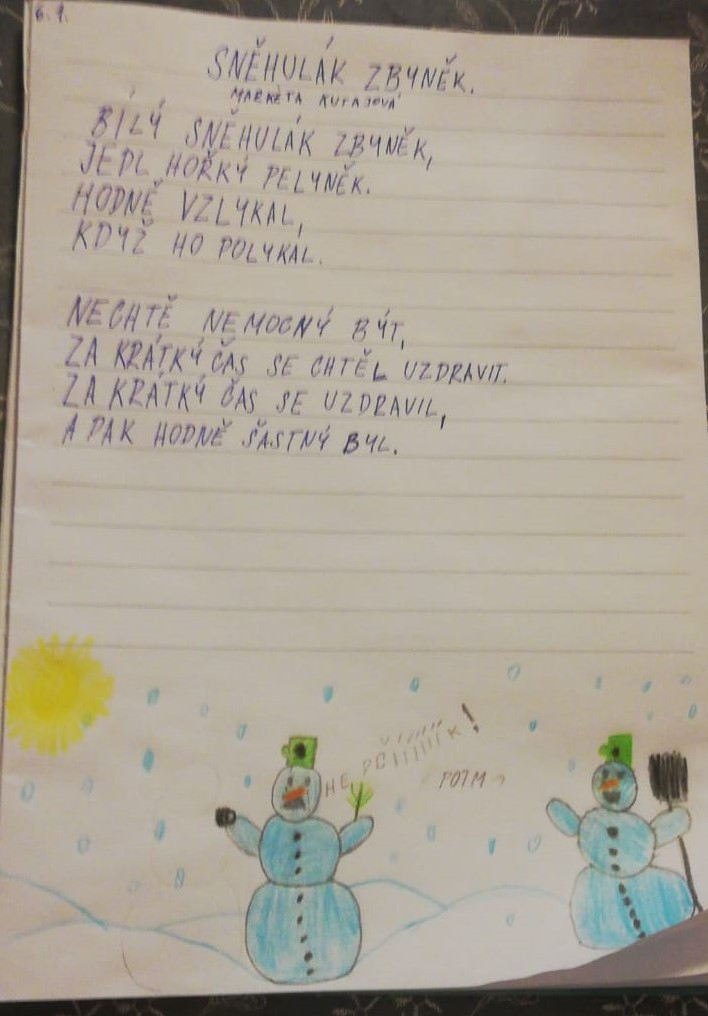 6.1.
SNĚHULÁK ZBYNĚK.
MARKÉTA
BÍLÝ SNĚHULÁK ZBYNĚK,
JEDL HOŘKÝ PELYNĚK.
HODNĚ VZLYKAL,
KDYŽ HO POLYKAL.
NECHTĚ NEMOCNÝ BÝT,
ZA KRÁTKÝ ČAS SE CHTĚL UZDRAVIT.
ZA KRÁTKÝ ČAS SE UZDRAVIL,
A PAK HODNĚ ŠASTNÝ BYL.